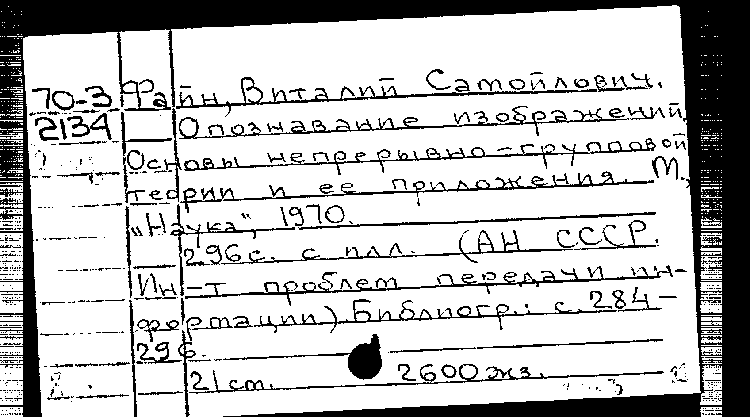 70-3 Файн, Виталий Самойлович.
2134 Опознавание изображений.
Основы непрерывно-групповой
теории и ее приложения. М.,
"Наука", 1970.
296с. с илл. (АН СССР.
Ин-т проблем передачи ин-
формации) Библиогр.: с. 284-
296.
21 см. 2600 экз.